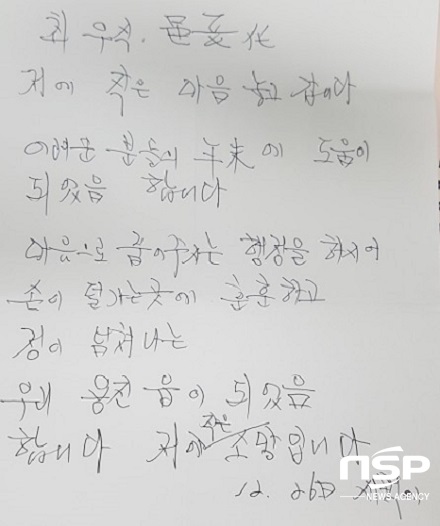 최 우직. 邑 化
저에 작은 마음 놓고 갑니다
어려운 분들의 年末에 도움이
되었음 합니다
마음으로 품어주시는 행정을 하시어
손이 덜가는곳에 훈훈하고
정이 넘쳐나는
우리 용진 읍이 되었음
합니다 저에 작은 소망입니다
12. 26日
NSP
NEWS AGENCY